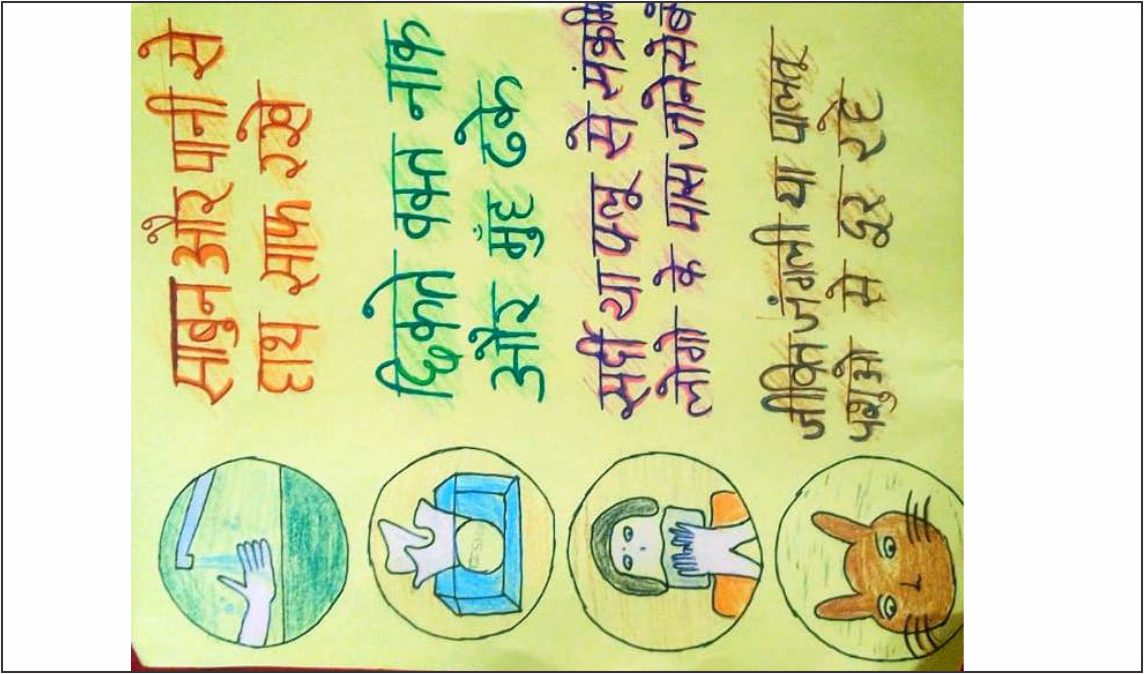 साबुन और पानी से
हाथ साफ रखे
छिकते वक्त नाक
और मुंह ढके
सर्दी या फ्लु से
लोगो के पास जानेसे
जीवित जंगली या पालतू
पशुओ से दूर रहे